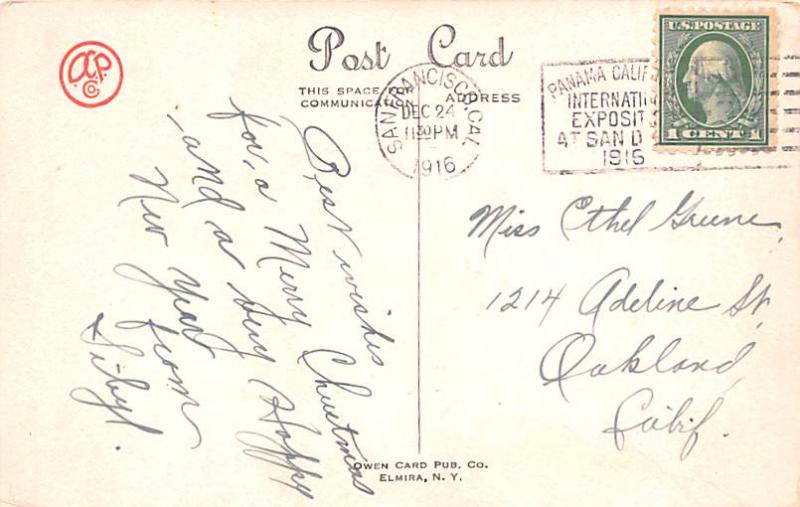 Post Card
THIS SPACE FOR
COMMUNICATION
ADDRESS
SAN FRANCISCO, CAL.
DEC 24
11 30 PM
1916
PANAMA CALIF
INTERNATI
EXPOSIT
AT SAN D
1916
U.S. POSTAGE
1 CENT 1
Best wishes
for, a Merry Christmas
and a very Happy
New Year from
Sibyl.
Miss Ethel Greene,
1214 Adeline St
Oakland
Calif.
OWEN CARD PUB. CO.
ELMIRA, N. Y.